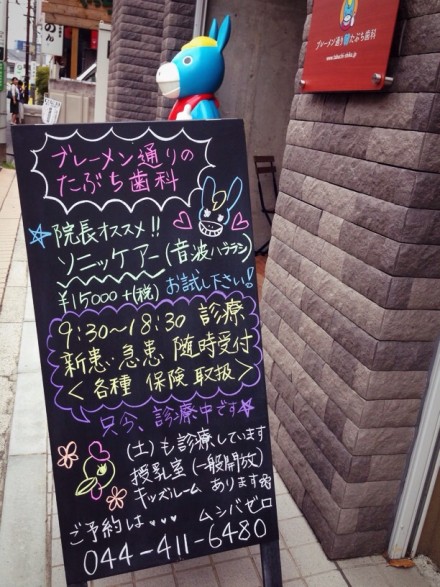 ブレーメン通り たぶち歯科
ブレーメン通りの
たぶち歯科
院長オススメ!!
ソニッケアー(音波ハブラシ)
¥15000+(税) お試し下さい!
9:30〜18:30 診療
新患・急患 随時受付
<各種 保険 取扱>
只今、診療中です
(土)も診療しています
授乳室(一般開放)
キッズルーム あります
ご予約は… ムシバゼロ
044-411-6480